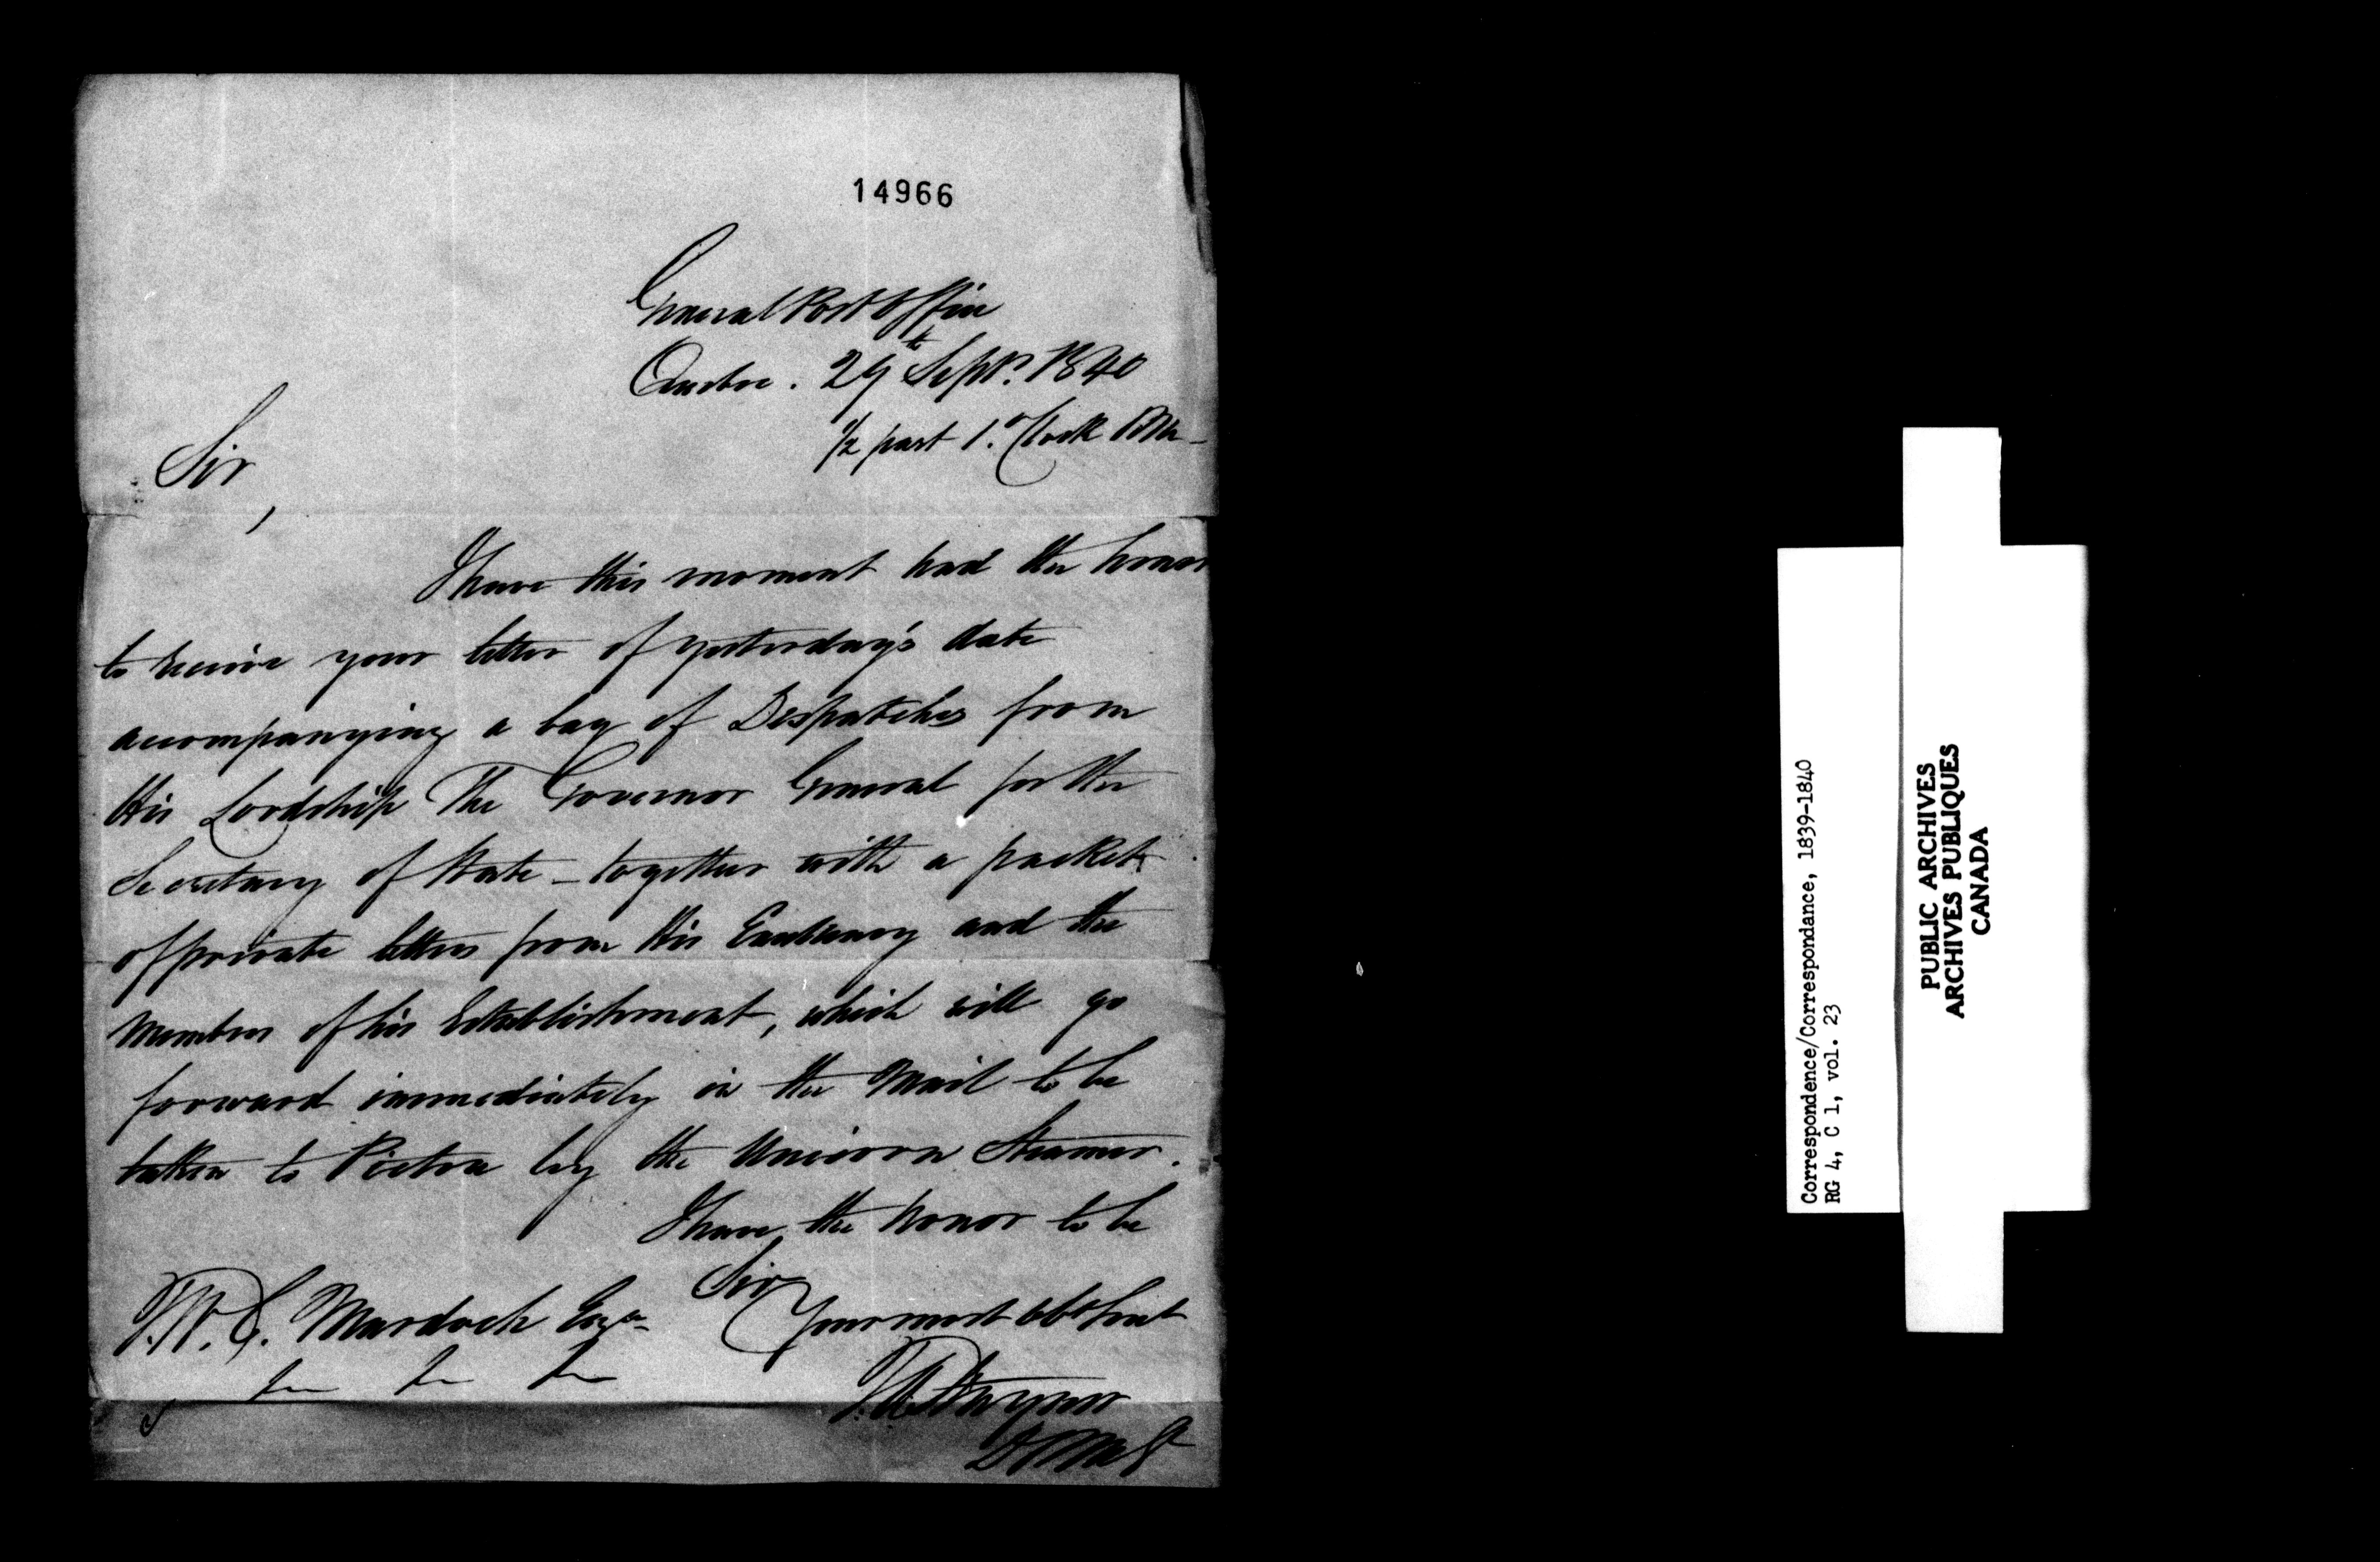 14966
General Post Office
Quebec. 29th Septr. 1840
1/2 past 1. o'Clock PM-
Sir,
I have this moment had the honor
to receive your letter of yesterday's date
accompanying a bag of Despatches from
His Lordship The Governor General for the
Secretary of State - together with a packet
of private letters from His Excellency and the
Members of his Establishment, which will go
forward immediately in the Mail to be
taken to Pictou by the Unicorn Steamer.
I have the honor to be
Sir
Your most obt Servt
T.W.C. Murdoch Esqr
&c &c &c
T.A. Stayner
DPMG
Correspondence/Correspondance, 1839-1840
RG 4, C 1, vol. 23
PUBLIC ARCHIVES
ARCHIVES PUBLIQUES
CANADA